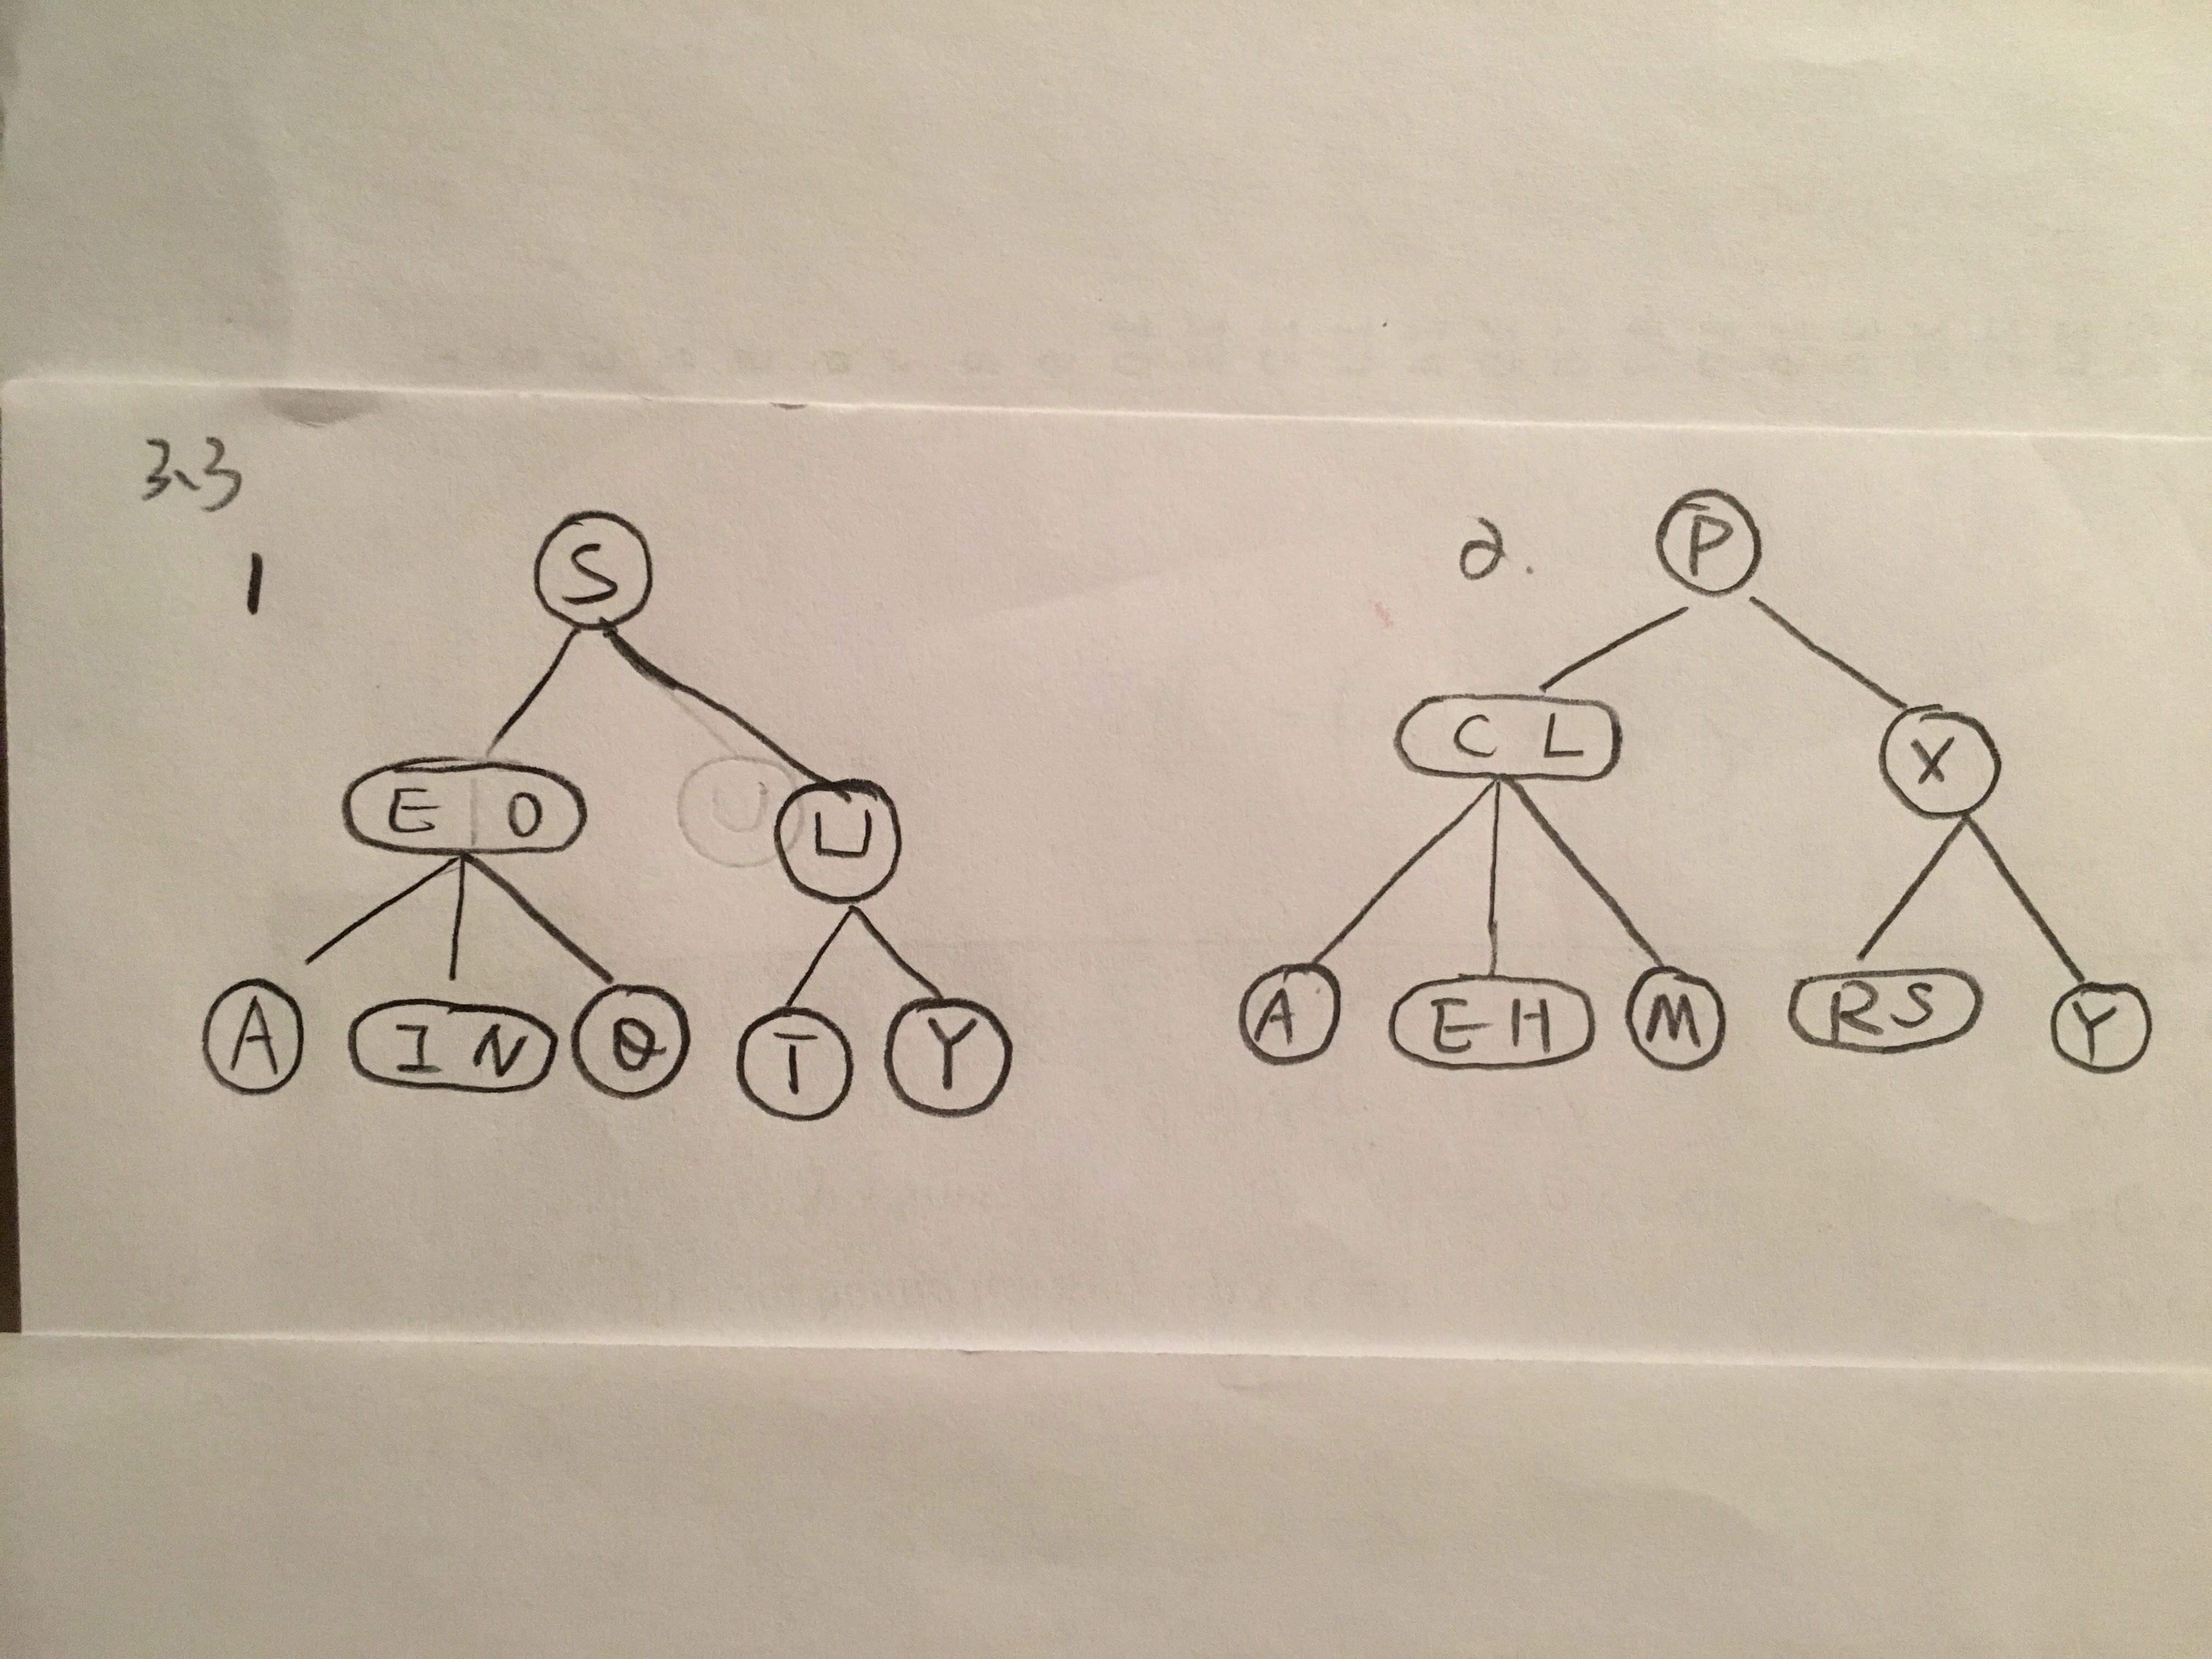 3.3
1
S
E O
U
A I N Q T Y
2.
P
C L
X
A E H M R S Y